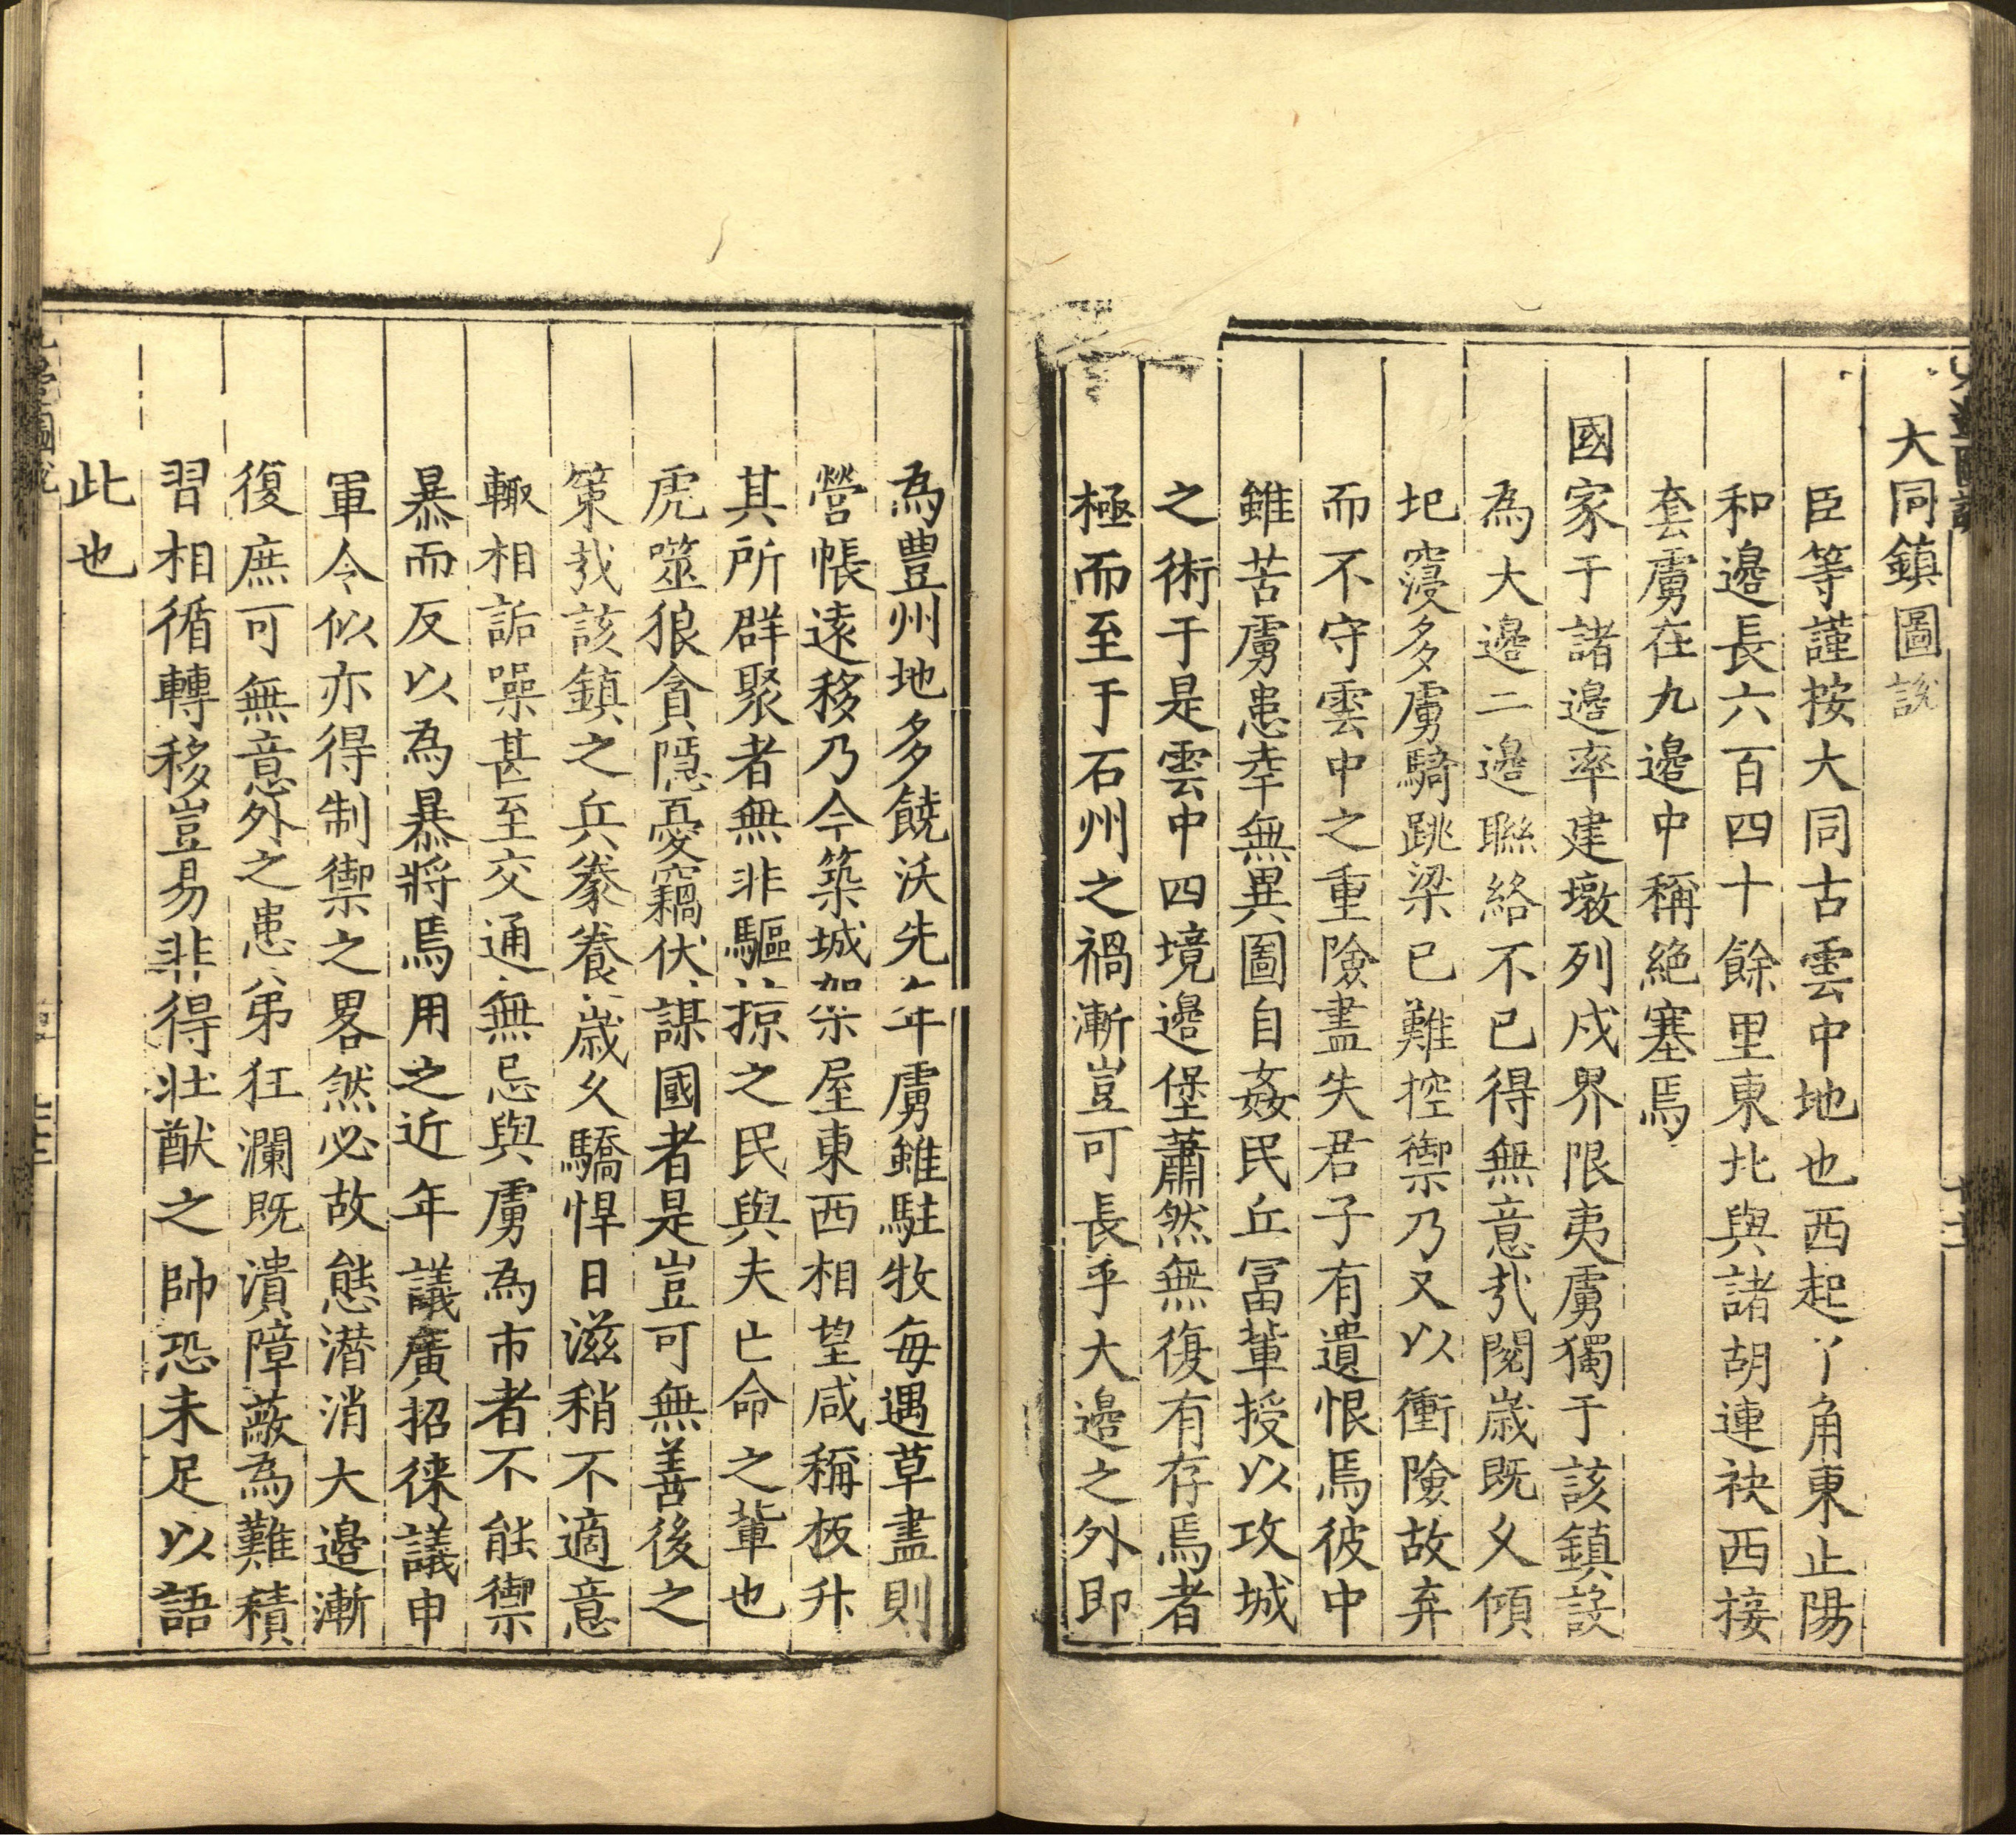 大同鎮圖說
臣等謹按大同古雲中地也西起丫角東止陽
和邊長六百四十餘里東北與諸胡連袂西接
套虜在九邊中稱絕塞焉
國家于諸邊率建墩列戍界限夷虜獨于該鎮設
為大邊二邊聯絡不已得無意㢤閱歲既久傾
圯寖多虜騎跳梁已難控禦乃又以衝險故弃
而不守雲中之重險盡失君子有遺恨焉彼中
雖苦虜患幸無異圖自姦民丘冨軰授以攻城
之術于是雲中四境邊堡蕭然無復有存焉者
極而至于石州之禍漸豈可長乎大邊之外即
為豊州地多饒沃先年虜雖駐牧毎遇草盡則
營帳遠移乃今築城架屋東西相望咸稱板升
其所群聚者無非驅掠之民與夫亡命之軰也
虎噬狼貪隱憂竊伏謀國者是豈可無善後之
策㢤該鎮之兵豢養歲久驕悍日滋稍不適意
輙相詬噪甚至交通無忌與虜為市者不能禦
暴而反以為暴將焉用之近年議廣招徠議申
軍令似亦得制禦之畧然必故態潜消大邊漸
復庶可無意外之患第狂瀾既潰障蔽為難積
習相循轉移豈易非得壯猷之帥恐未足以語
此也